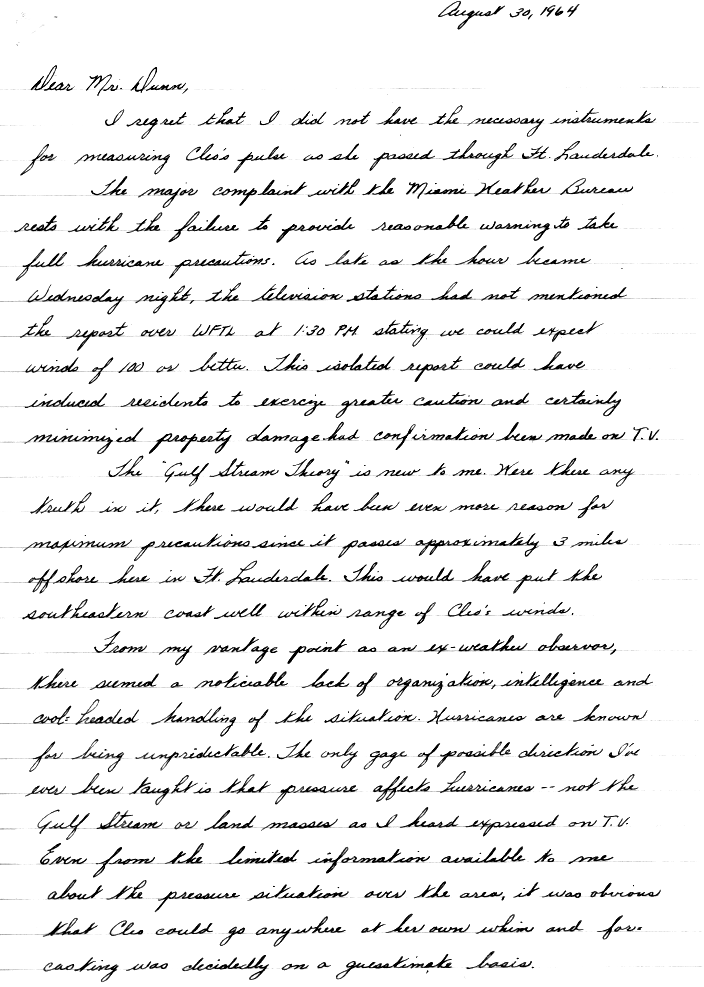 August 30, 1964
Dear Mr. Dunn,
I regret that I did not have the necessary instruments
for measuring Cleo's pulse as she passed through Ft. Lauderdale.
The major complaint with the Miami Weather Bureau
rests with the failure to provide reasonable warning to take
full hurricane precautions. As late as the hour became
Wednesday night, the television stations had not mentioned
the report over WFTL at 1:30 P.M. stating we could expect
winds of 100 or better. This isolated report could have
induced residents to excercize greater caution and certainly
minimized property damage had confirmation been made on T.V.
The "Gulf Stream Theory" is new to me. Were there any
truth in it, there would have been even more reason for
maximum precautions since it passes approximately 3 miles
off shore here in Ft. Lauderdale. This would have put the
southeastern coast well within range of Cleo's winds.
From my vantage point as an ex-weather observor,
there seemed a noticiable lack of organization, intellegence and
cool-headed handling of the situation. Hurricanes are known
for being unpredictable. The only gage of possible direction I've
ever been taught is that pressure affects hurricanes -- not the
Gulf Stream or land masses as I heard expressed on T.V.
Even from the limited information available to me
about the pressure situation over the area, it was obvious
that Cleo could go anywhere at her own whim and for-
casting was decidedly on a guesstimate basis.